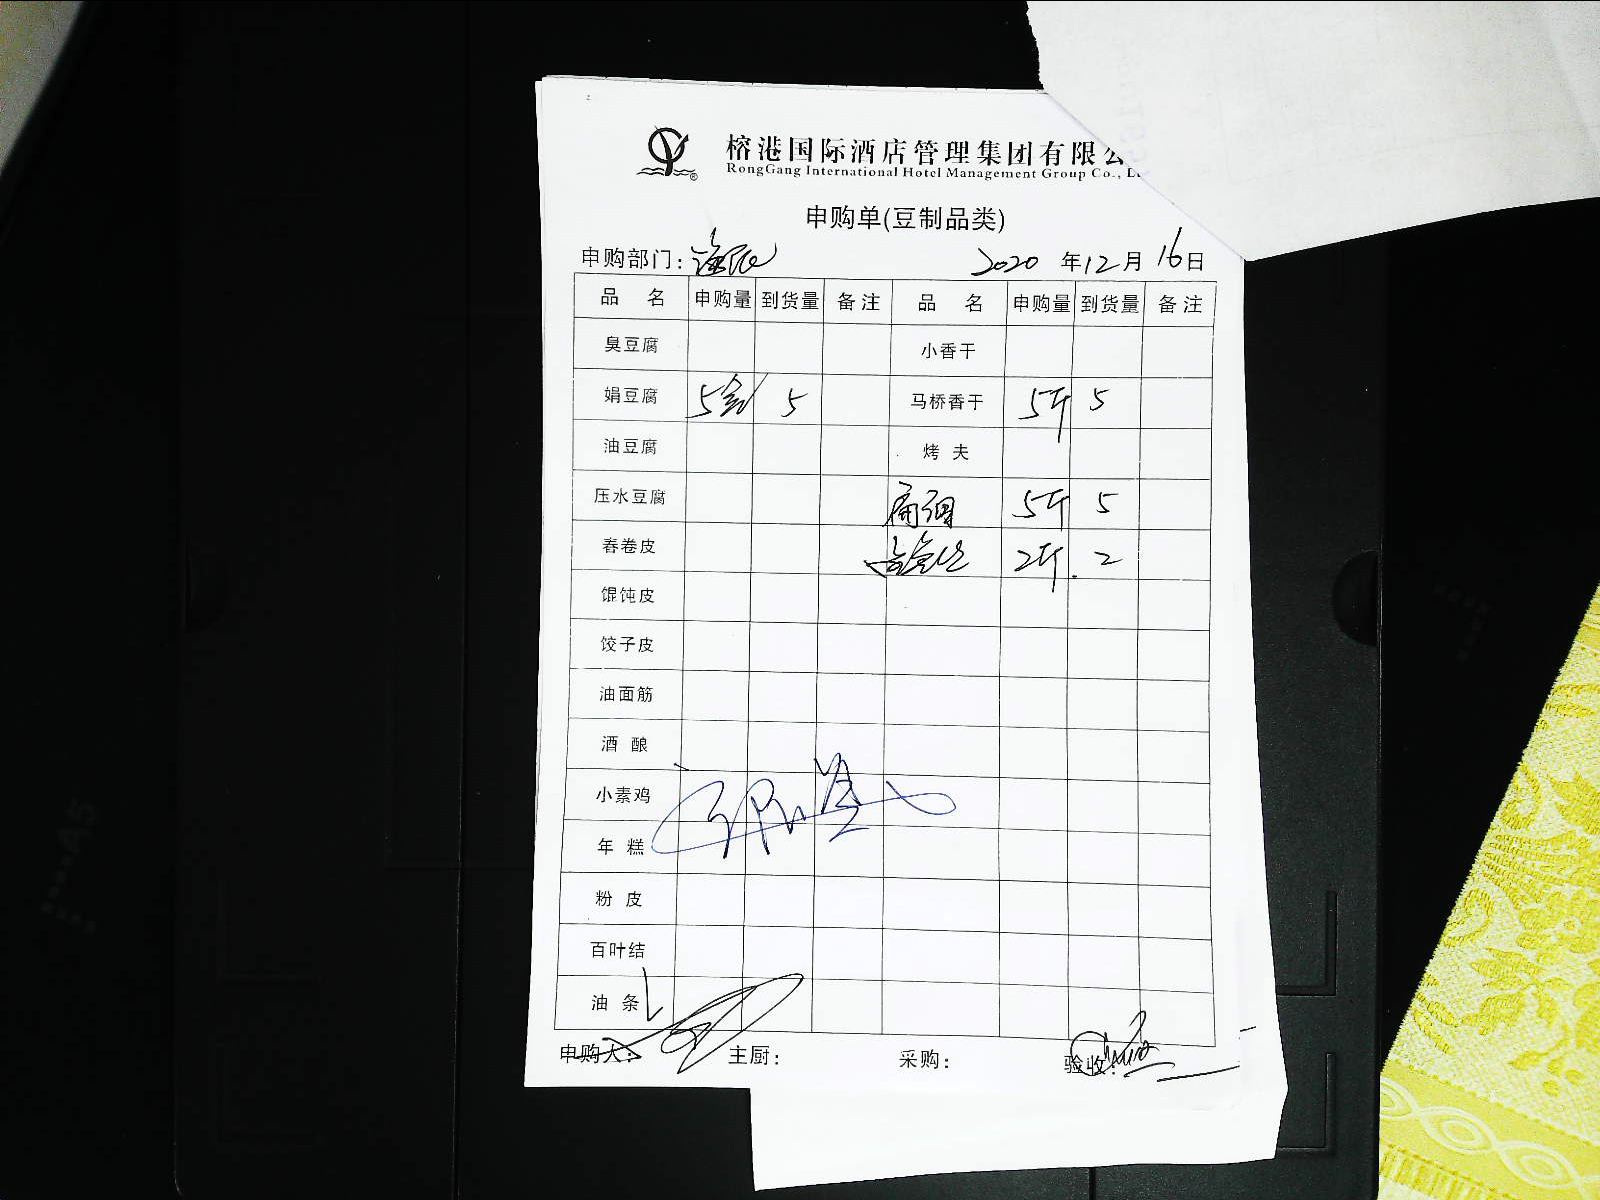 榕港国际酒店管理集团有限公
RongGang International Hotel Management Group Co., L
申购单(豆制品类)
申购部门: 2020 年 12 月 16 日
品 名 申购量 到货量 备注 品 名 申购量 到货量 备注
臭豆腐 小香干
娟豆腐 5 5 马桥香干 5斤 5
油豆腐 烤夫
压水豆腐 5斤 5
春卷皮 2斤 2
馄饨皮
饺子皮
油面筋
酒酿
小素鸡
年糕
粉皮
百叶结
油条
申购人: 主厨: 采购: 验收: